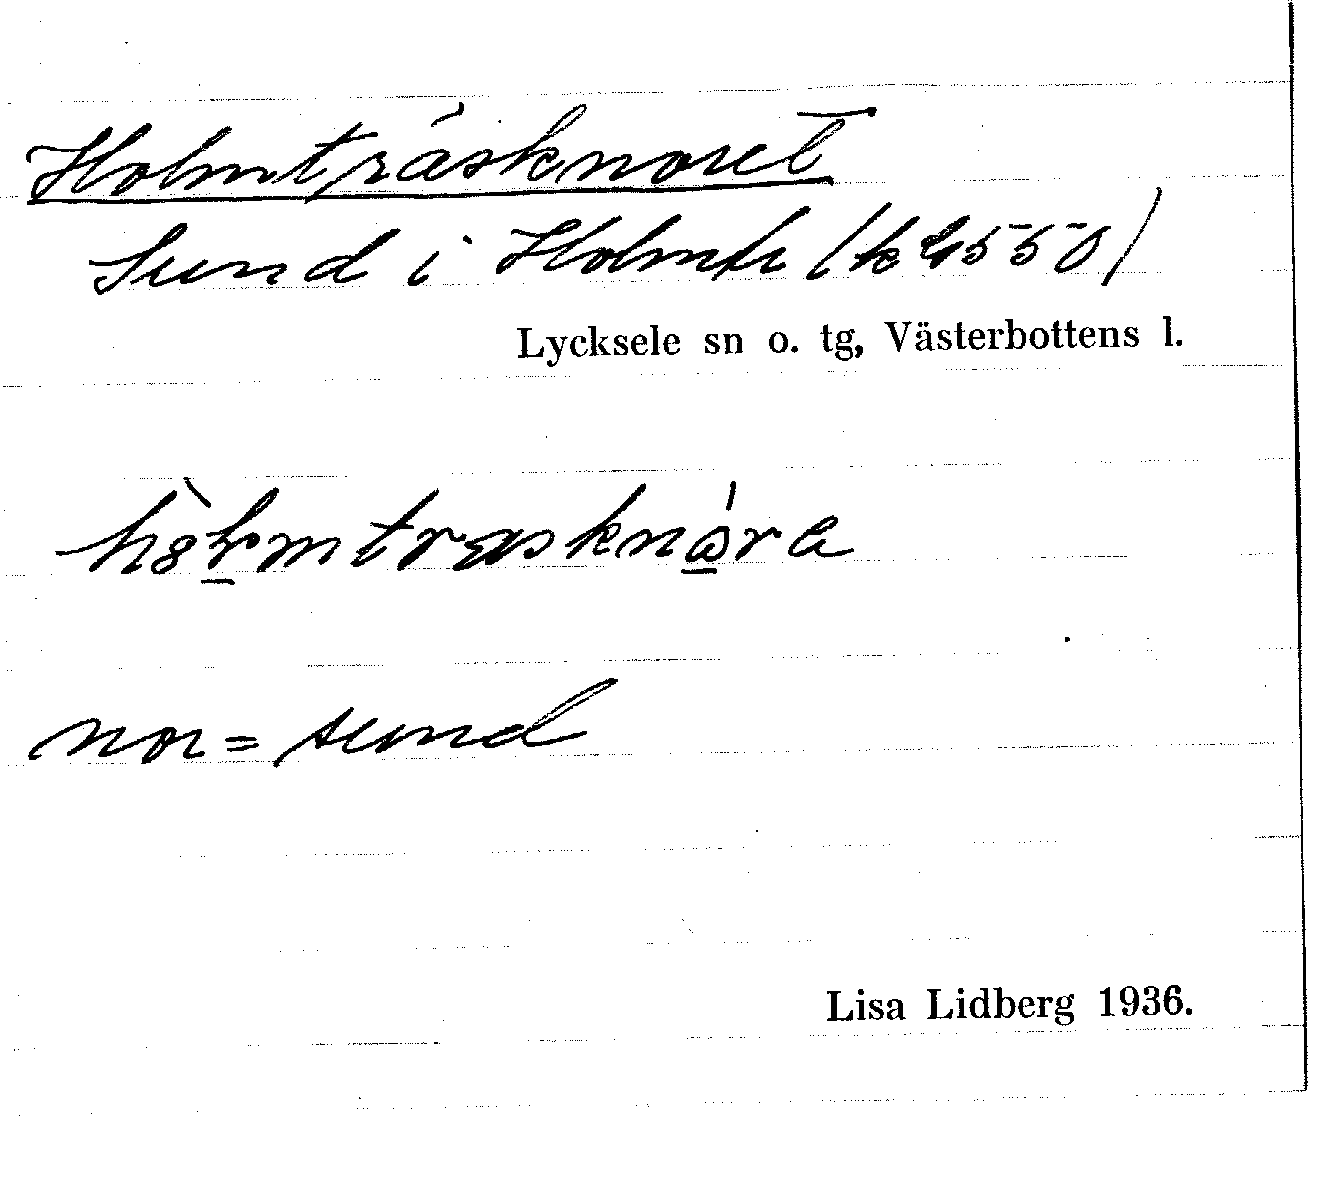 Holmträsknoret
Sund i Holmtr (k 4550)
Lycksele sn o. tg, Västerbottens l.
nor = sund
Lisa Lidberg 1936.